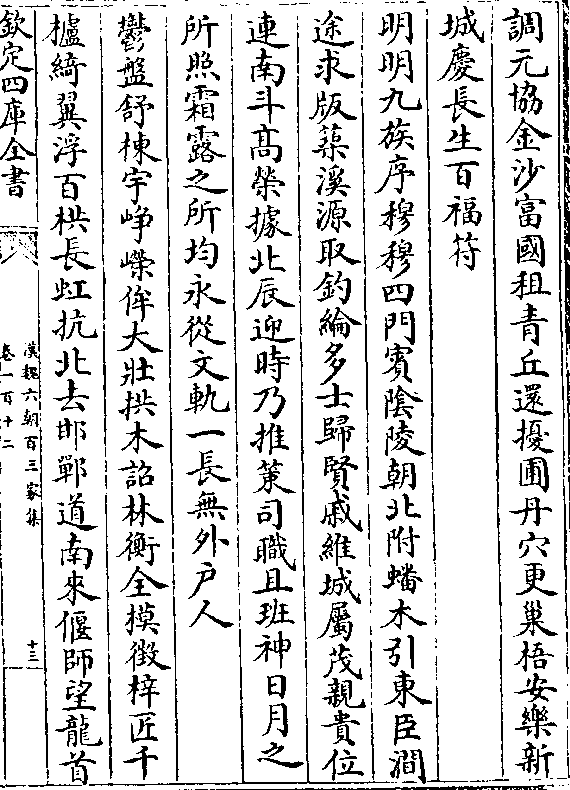 調元協金沙富國租青丘還擾圃丹穴更巢梧安樂新
城慶長生百福符
明明九族序穆穆四門賓陰陵朝北附蟠木引東臣澗
途求版築溪源取釣綸多士歸賢戚維城屬茂親貴位
連南斗高榮據北辰迎時乃推策司職且班神日月之
所照霜露之所均永從文軌一長無外户人
鬱盤舒棟宇崢嶸侔大壯拱木詔林衡全模徴梓匠千
櫨綺翼浮百栱長虹抗北去邯鄲道南來偃師望龍首
欽定四庫全書
漢魏六朝百三家集
卷一百十二
十三